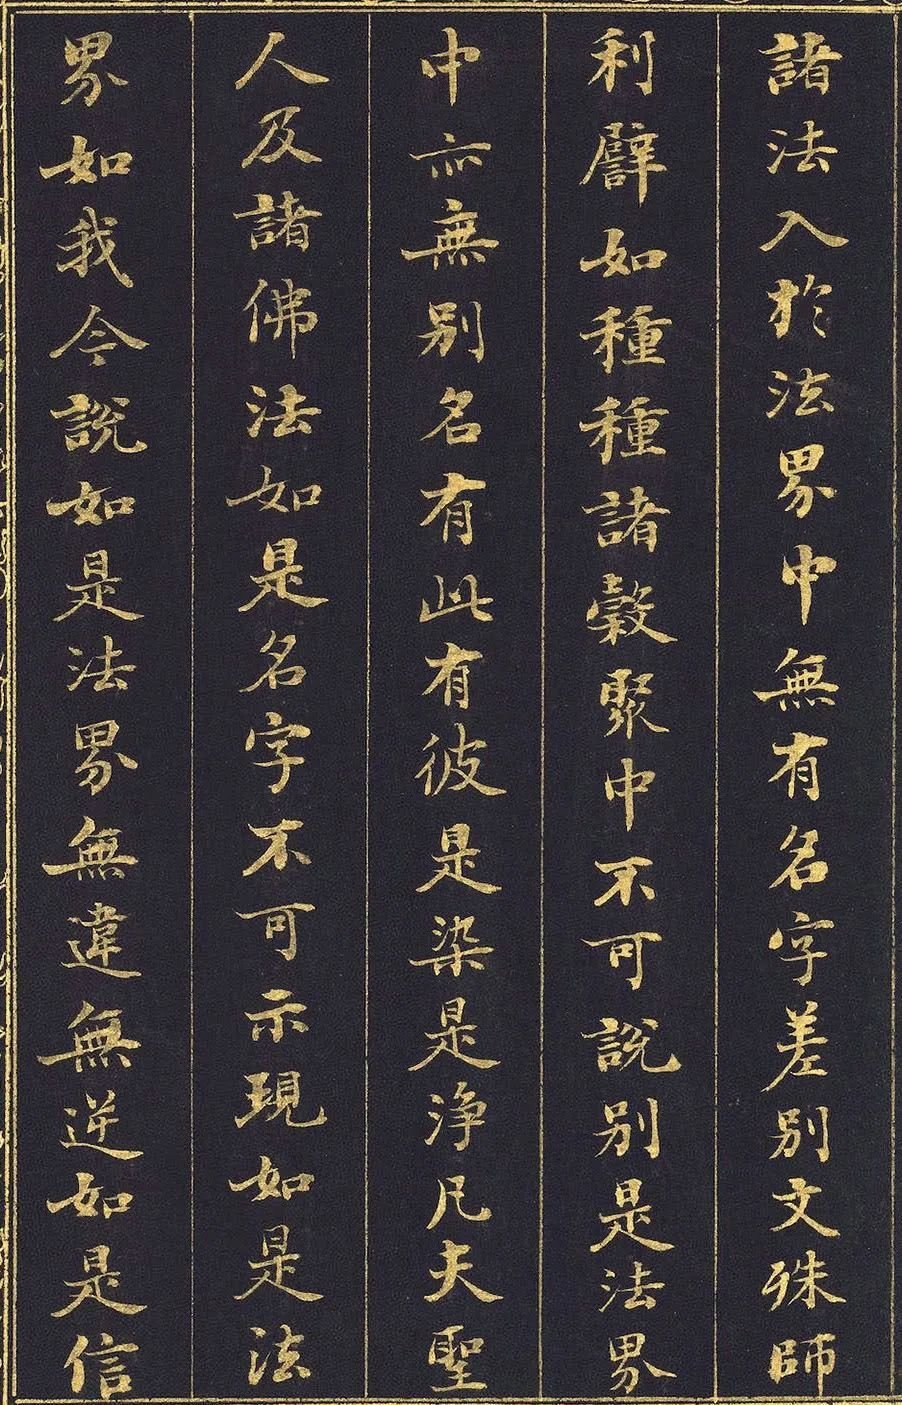 諸法入於法界中無有名字差別文殊師
利譬如種種諸穀聚中不可說別是法界
中亦無別名有此有彼是染是淨凡夫聖
人及諸佛法如是名字不可示現如是法
界如我今說如是法界無違無逆如是信